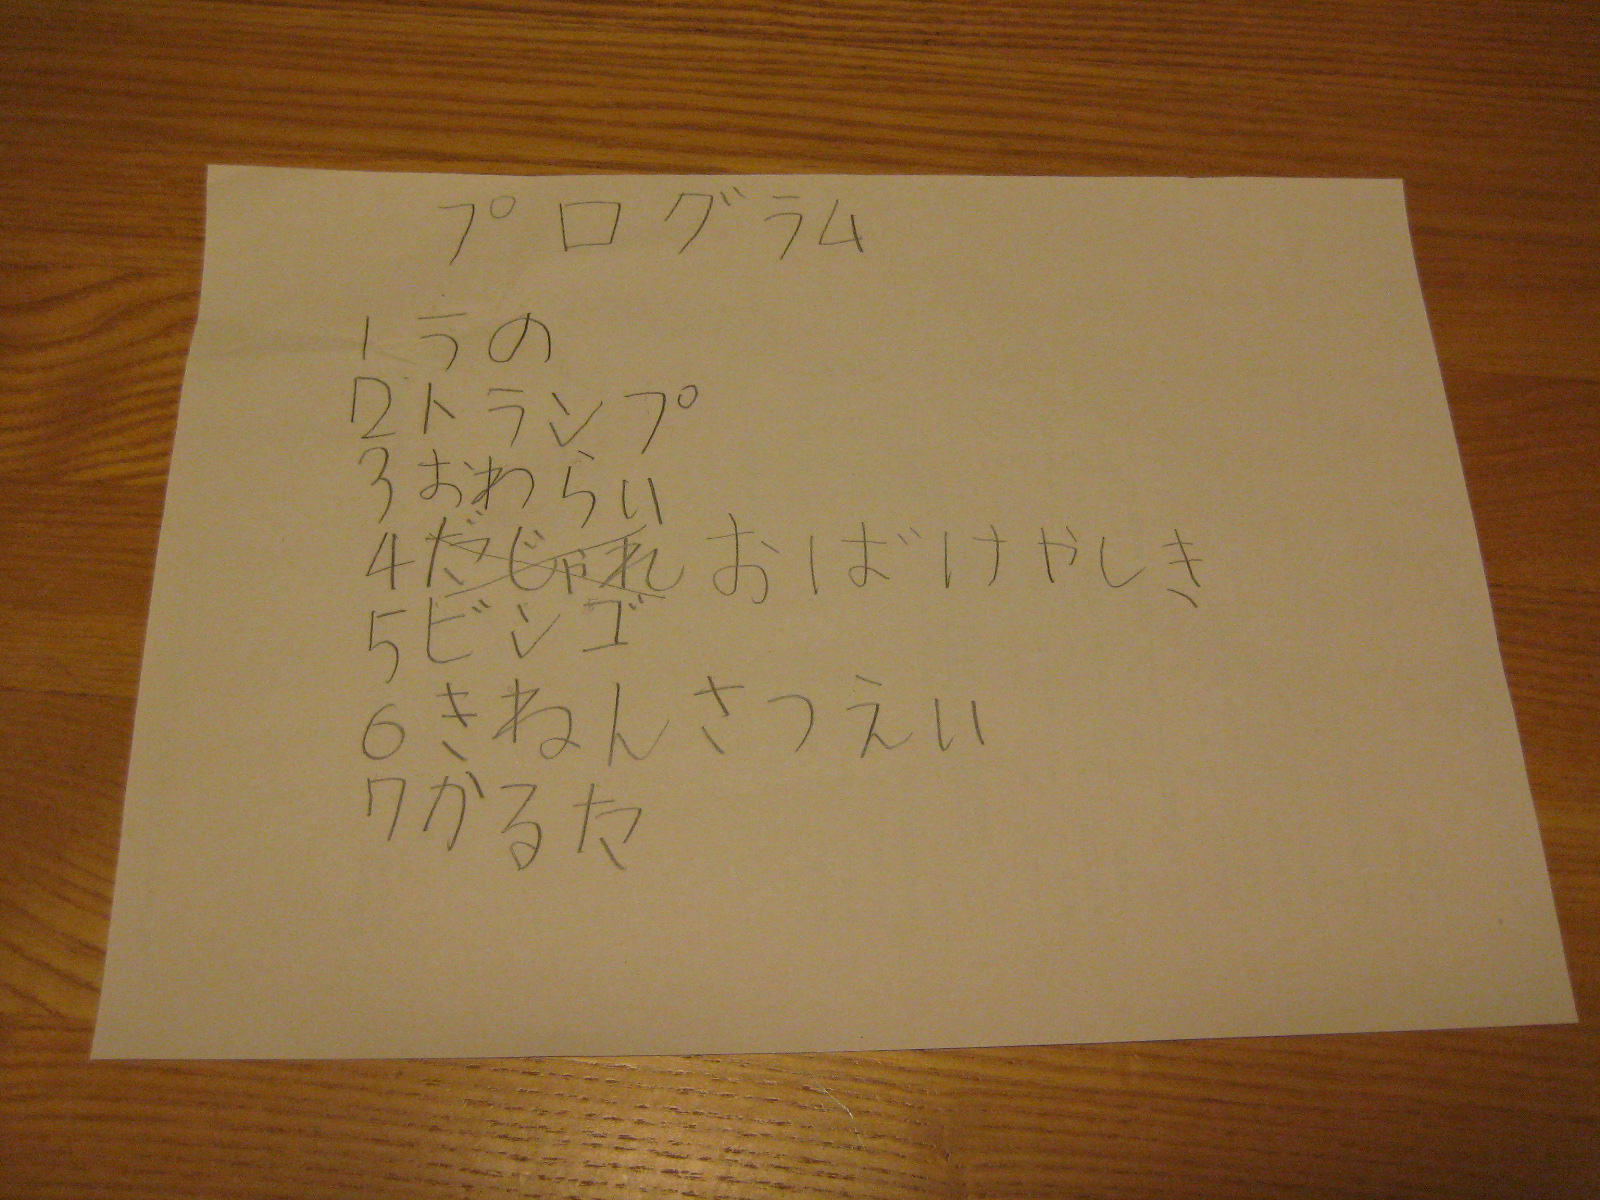 プログラム
1 ラの
2 トランプ
3 おわらい
4 だじゃれ おばけやしき
5 ビンゴ
6 きねんさつえい
7 かるた